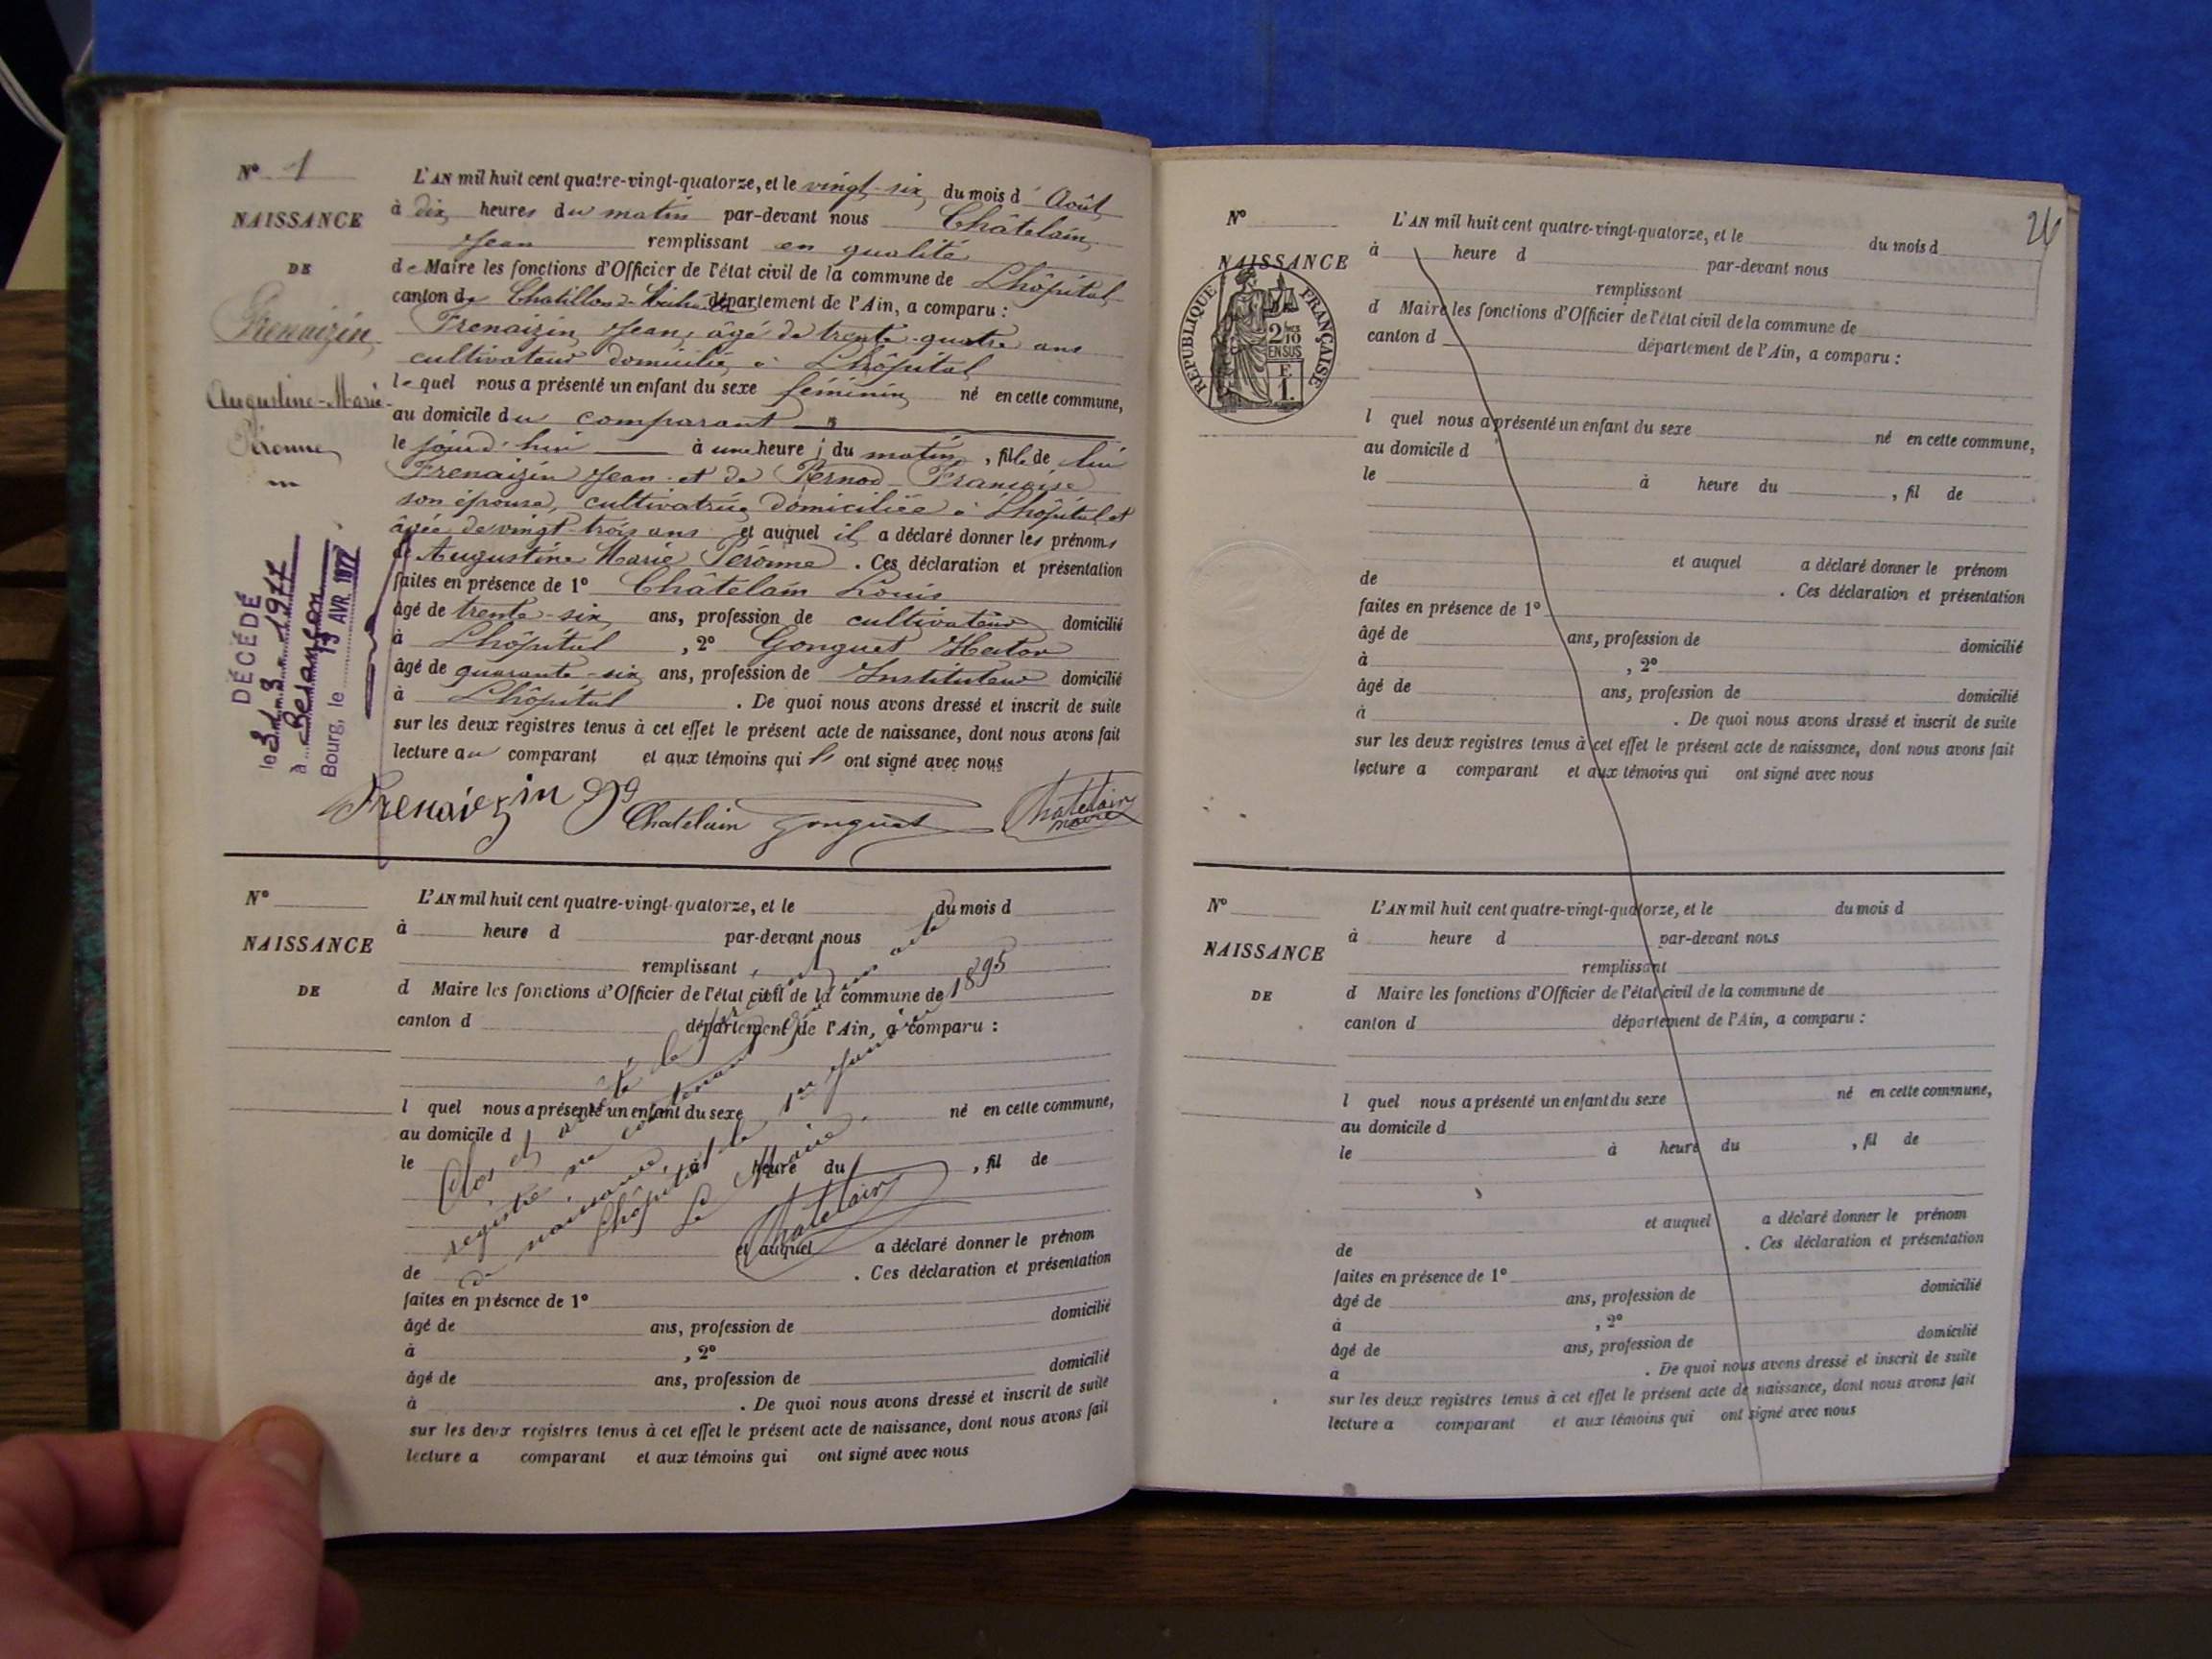 N° 1
NAISSANCE
DE
Frenaizin
Augustine-Marie
Péronne
L'AN mil huit cent quatre-vingt-quatorze, et le vingt-six du mois d' Août
à dix heures du matin par-devant nous Châtelain
Jean remplissant en qualité
de Maire les fonctions d'Officier de l'état civil de la commune de Lhôpital
canton de Chatillon-de-Michaille département de l'Ain, a comparu :
Frenaizin Jean, âgé de trente-quatre ans
cultivateur domicilié à Lhôpital
lequel nous a présenté un enfant du sexe féminin né en cette commune,
au domicile du comparant
le jourd'hui à une heure du matin, fille de lui
Frenaizin Jean et de Pernod Françoise
son épouse, cultivatrice domiciliée à Lhôpital et
âgée de vingt-trois ans et auquel il a déclaré donner les prénoms
de Augustine Marie Péronne. Ces déclaration et présentation
faites en présence de 1° Châtelain Louis
âgé de trente-six ans, profession de cultivateur domicilié
à Lhôpital, 2° Gonguet Hector
âgé de quarante-six ans, profession de Instituteur domicilié
à Lhôpital. De quoi nous avons dressé et inscrit de suite
sur les deux registres tenus à cet effet le présent acte de naissance, dont nous avons fait
lecture au comparant et aux témoins qui ont signé avec nous
DÉCÉDÉ
le 31.3.1977
à Besançon
Bourg, le 13 AVR. 1977
Frenaizin
Chatelain Gonguet Chatelain maire
N°
NAISSANCE
DE
L'AN mil huit cent quatre-vingt-quatorze, et le du mois d
à heure d par-devant nous
remplissant
d Maire les fonctions d'Officier de l'état civil de la commune de
canton d département de l'Ain, a comparu :
l quel nous a présenté un enfant du sexe né en cette commune,
au domicile d
le à heure du , fil de
et auquel a déclaré donner le prénom
de . Ces déclaration et présentation
faites en présence de 1°
âgé de ans, profession de domicilié
à , 2°
âgé de ans, profession de domicilié
à . De quoi nous avons dressé et inscrit de suite
sur les deux registres tenus à cet effet le présent acte de naissance, dont nous avons fait
lecture a comparant et aux témoins qui ont signé avec nous
Clos et arrêté le présent
registre ne contenant qu'un seul acte
de naissance.
Lhôpital le 1er Janvier 1895
Le Maire.
Chatelain
26
N°
NAISSANCE
DE
RÉPUBLIQUE FRANÇAISE
2/10
EN SUS
E
1.
L'AN mil huit cent quatre-vingt-quatorze, et le du mois d
à heure d par-devant nous
remplissant
d Maire les fonctions d'Officier de l'état civil de la commune de
canton d département de l'Ain, a comparu :
l quel nous a présenté un enfant du sexe né en cette commune,
au domicile d
le à heure du , fil de
et auquel a déclaré donner le prénom
de . Ces déclaration et présentation
faites en présence de 1°
âgé de ans, profession de domicilié
à , 2°
âgé de ans, profession de domicilié
à . De quoi nous avons dressé et inscrit de suite
sur les deux registres tenus à cet effet le présent acte de naissance, dont nous avons fait
lecture a comparant et aux témoins qui ont signé avec nous
N°
NAISSANCE
DE
L'AN mil huit cent quatre-vingt-quatorze, et le du mois d
à heure d par-devant nous
remplissant
d Maire les fonctions d'Officier de l'état civil de la commune de
canton d département de l'Ain, a comparu :
l quel nous a présenté un enfant du sexe né en cette commune,
au domicile d
le à heure du , fil de
et auquel a déclaré donner le prénom
de . Ces déclaration et présentation
faites en présence de 1°
âgé de ans, profession de domicilié
à , 2°
âgé de ans, profession de domicilié
à . De quoi nous avons dressé et inscrit de suite
sur les deux registres tenus à cet effet le présent acte de naissance, dont nous avons fait
lecture a comparant et aux témoins qui ont signé avec nous